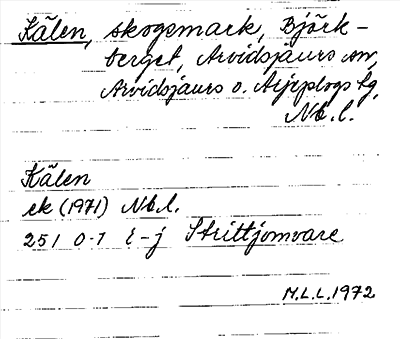 Kälen, skogsmark, Björk-
berget, Arvidsjaurs sn,
Arvidsjaurs o. Arjeplogs tg,
Nb.l.
Kälen
ek (1971) Nb.l.
251 0-1 i-j Strittjomvare
M.L.L. 1972